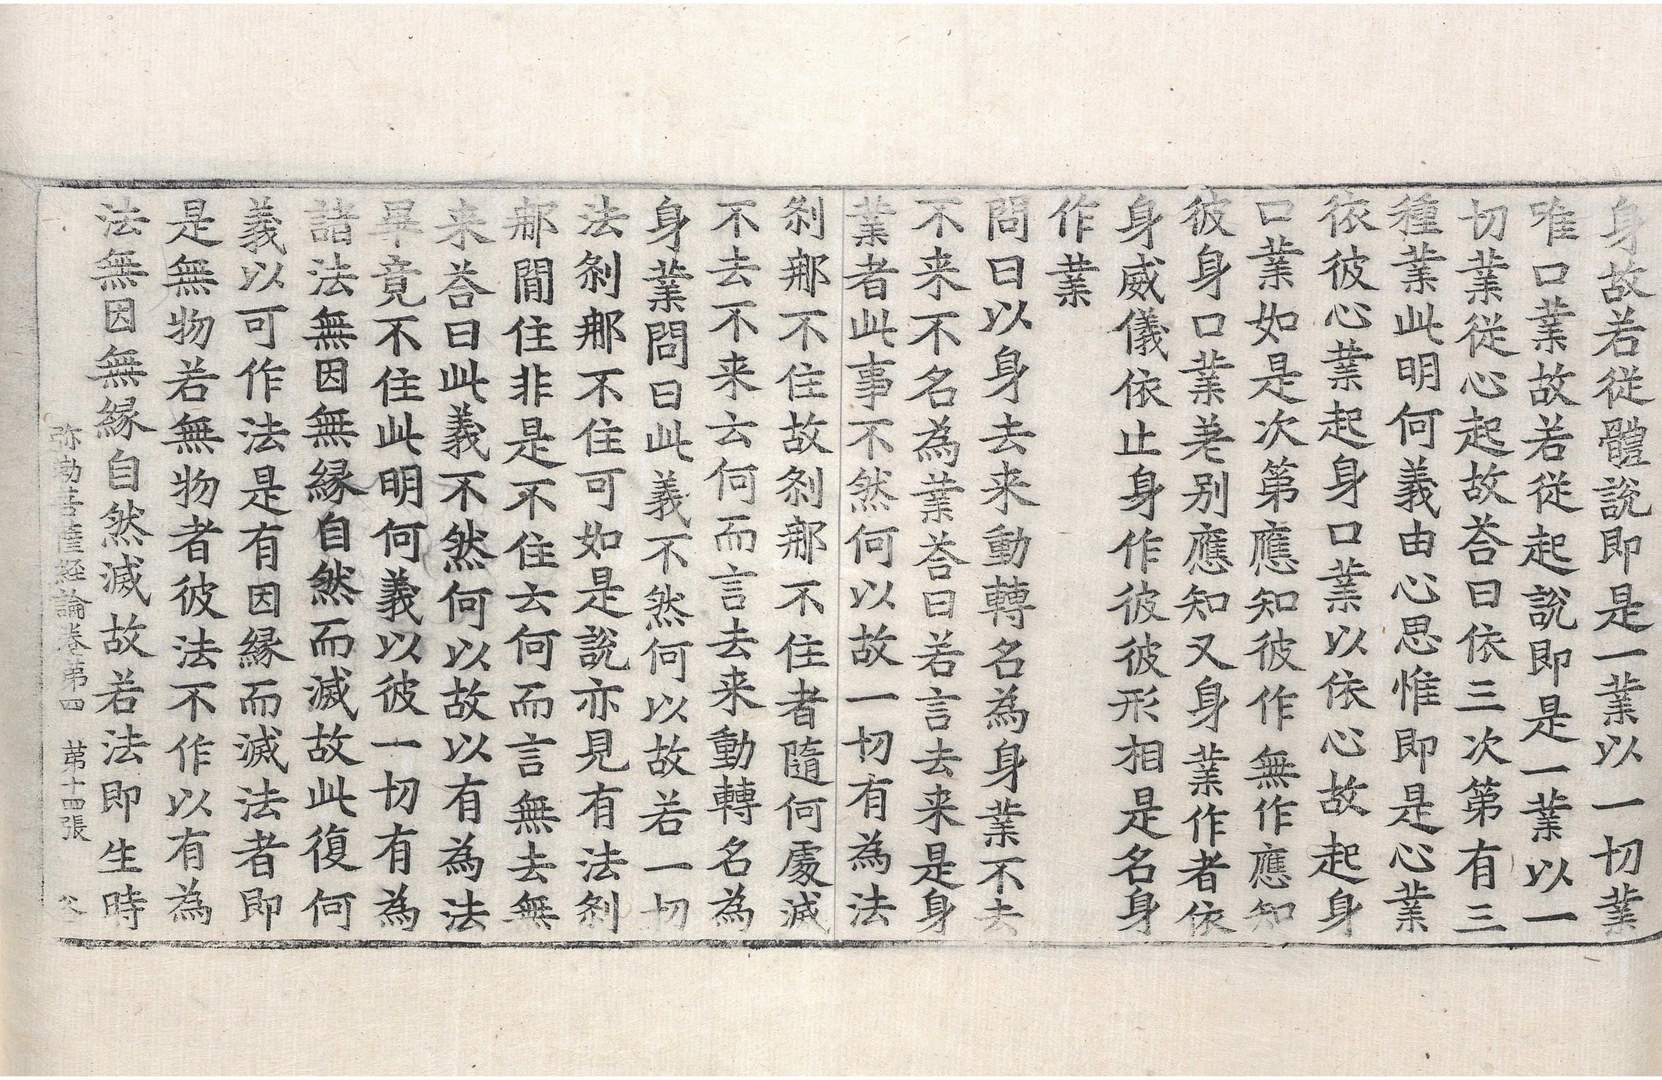 身故若從體說即是一業以一切業
唯口業故若從起說即是一業以一
切業從心起故荅曰依三次第有三
種業此明何義由心思惟即是心業
依彼心業起身口業以依心故起身
口業如是次第應知彼作無作應知
彼身口業差别應知又身業作者依
身威儀依止身作彼彼形相是名身
作業
問曰以身去来動轉名為身業不去
不来不名為業荅曰若言去来是身
業者此事不然何以故一切有為法
剎那不住故剎那不住者隨何處滅
不去不来云何而言去来動轉名為
身業問曰此義不然何以故若一切
法剎那不住可如是說亦見有法剎
那間住非是不住云何而言無去無
来荅曰此義不然何以故以有為法
畢竟不住此明何義以彼一切有為
諸法無因無緣自然而滅故此復何
義以可作法是有因緣而滅法者即
是無物若無物者彼法不作以有為
法無因無緣自然滅故若法即生時
弥勒菩薩経論卷第四 第十四張